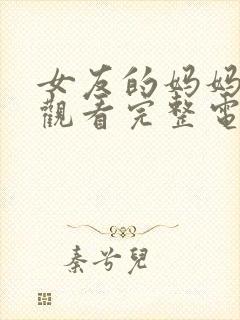 女友的妈妈
觀看完整電
秦兮兒